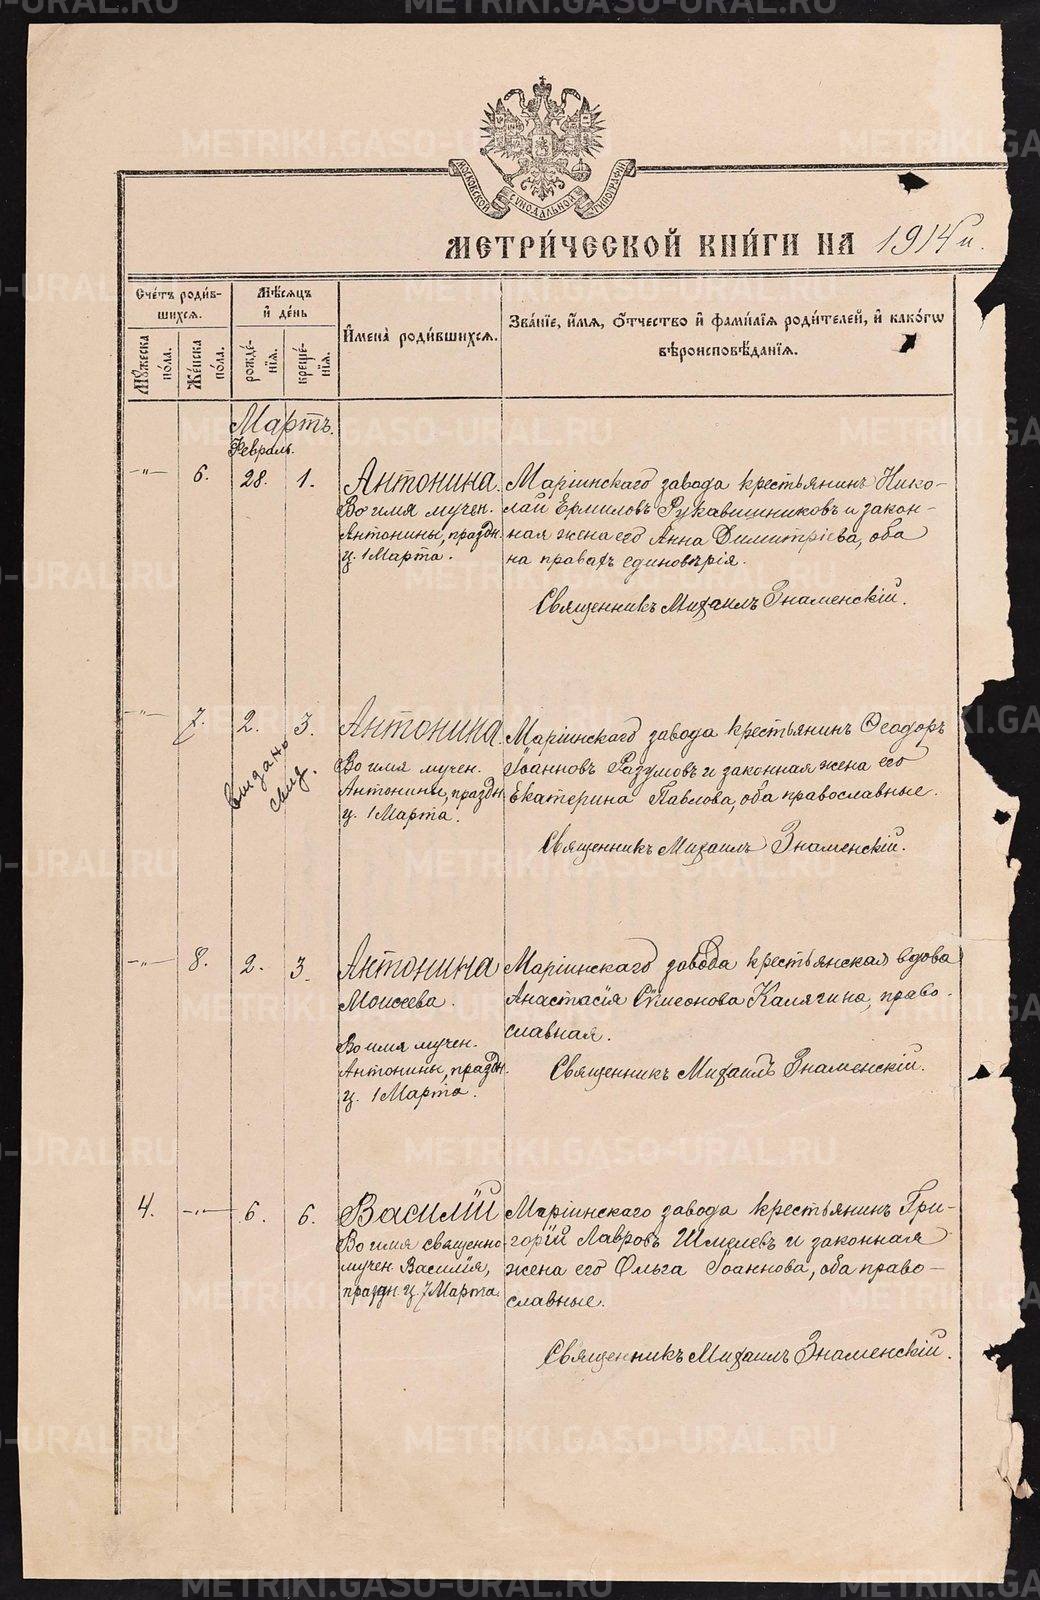 METRIKI.GASO-URAL.RU
МОСКОВСКОЙ СУНОДАЛЬНОЙ ТИПОГРАФІИ
МЕТРИ́ЧЕСКОЙ КНИ́ГИ НА 1914 и.
Сче́тъ роди́в-
шихся.
Мѣ́сяцъ
и́ де́нь
И҆мена̀ роди́вшихся.
Зва́нїе, и҆́мя, Ѻ҆́тчество и҆ фами́лїя роди́телей, и҆ како́гѡ
вѣроисповѣ́данїя.
Мꙋ́жеска
по́ла.
Же́нска
по́ла.
рожде́-
нїя.
креще́-
нїя.
Мартъ.
Февраль.
-"- 6. 28. 1.
Антонина.
Во имя мучен.
Антонины, праздн.
ц. 1 Марта.
Маріинскаго завода крестьянинъ Нико-
лай Ермиловъ Рукавишниковъ и закон-
ная жена его Анна Димитріева, оба
на правахъ единовѣрія.
Священникъ Михаилъ Знаменскій.
-"- 7. 2. 3.
выдано
свид.
Антонина.
Во имя мучен.
Антонины, праздн
ц. 1 Марта.
Маріинскаго завода крестьянинъ Ѳеодоръ
Іоанновъ Разумовъ и законная жена его
Екатерина Павлова, оба православные.
Священникъ Михаилъ Знаменскій.
-"- 8. 2. 3.
Антонина
Моисеева.
Во имя мучен.
Антонины, праздн.
ц. 1 Марта.
Маріинскаго завода крестьянская вдова
Анастасія Сѵмеонова Калягина, право-
славная.
Священникъ Михаилъ Знаменскій.
4. -"- 6. 6.
Василій
Во имя священно-
мучен Василія,
праздн ц. 7 Марта.
Маріинскаго завода крестьянинъ Гри-
горій Лавровъ Шмелевъ и законная
жена его Ольга Іоаннова, оба право-
славные.
Священникъ Михаилъ Знаменскій.